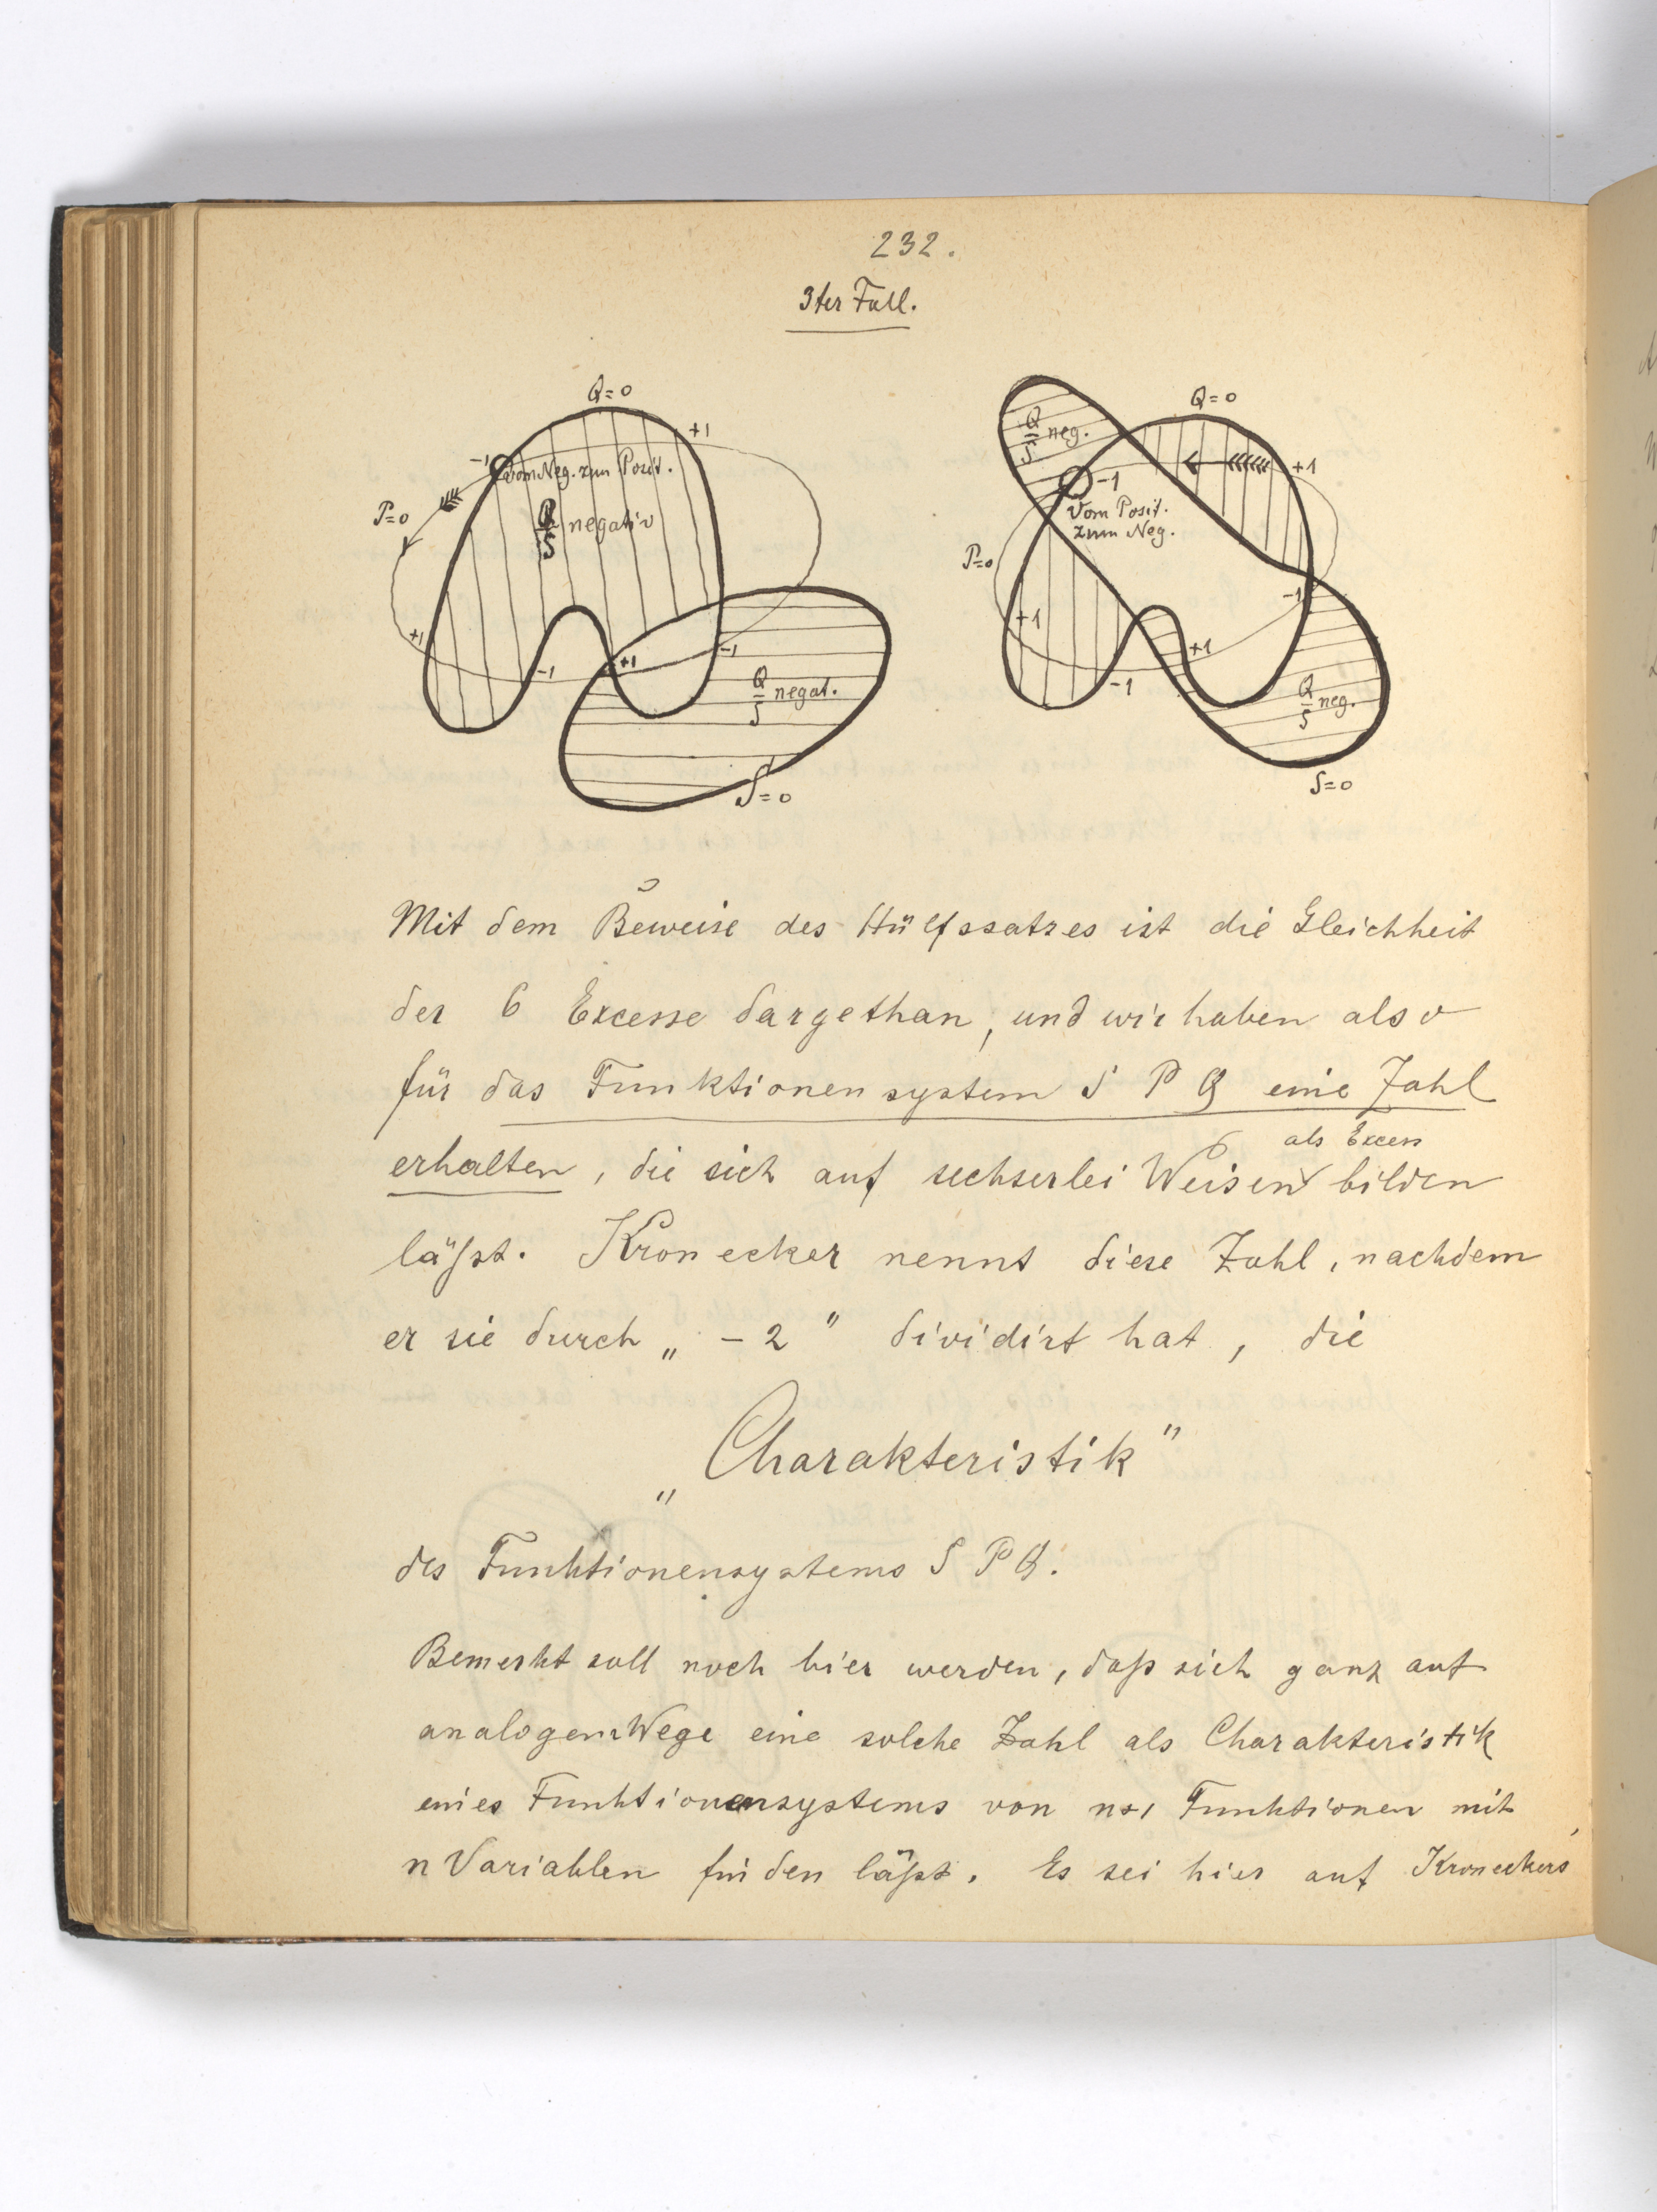 232.
3ter Fall.
Q=0
+1
-1
Vom Neg. zum Posit.
P=0
Q/S negativ
+1
-1
+1
-1
Q/S negat.
S=0
Q=0
Q/S neg.
+1
-1
Vom Posit.
zum Neg.
P=0
-1
+1
+1
-1
Q/S neg.
S=0
Mit dem Beweise des Hülfssatzes ist die Gleichheit
der 6 Excesse dargethan, und wir haben also
für das Funktionensystem S P Q eine Zahl
als Excess
erhalten, die sich auf sechserlei Weisen bilden
läßt. Kronecker nennt diese Zahl, nachdem
er sie durch „ -2 " dividirt hat, die
„Charakteristik"
des Funktionensystems S P Q.
Bemerkt soll noch hier werden, daß sich ganz auf
analogem Wege eine solche Zahl als Charakteristik
eines Funktionensystems von n+1 Funktionen mit
n Variablen finden läßt. Es sei hier auf Kroneckers